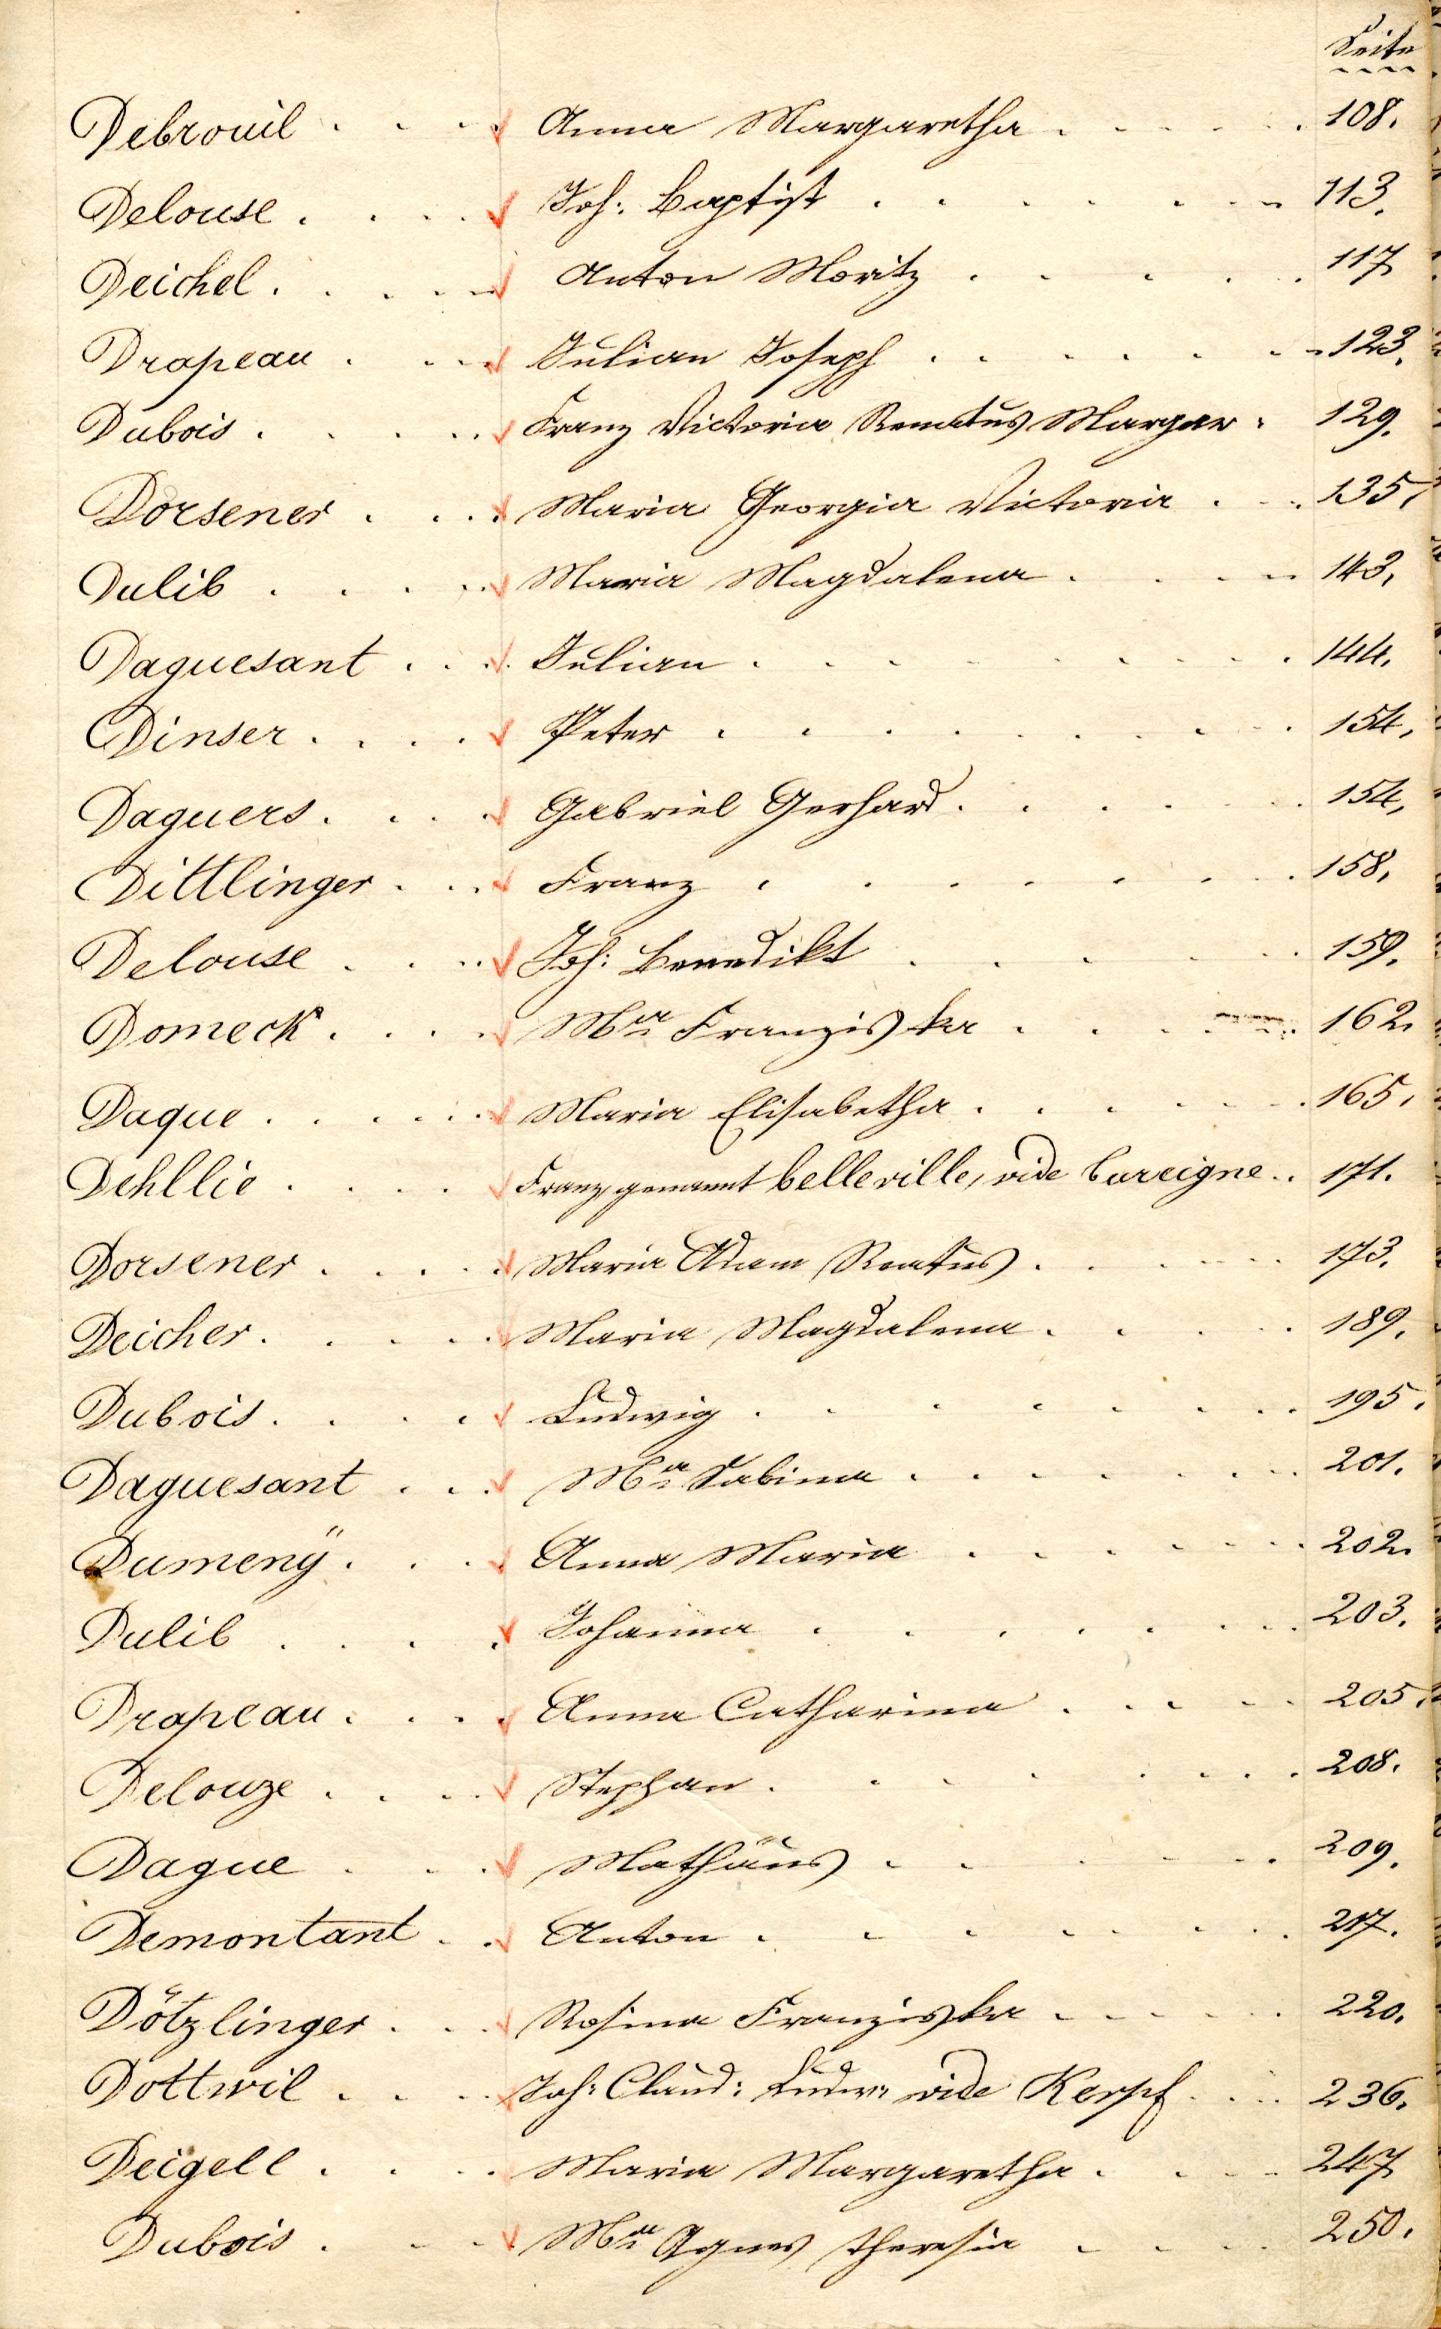 Seite
Debrouil Anna Margaretha 108.
Delouse Joh: Baptist 113.
Deichel Anton Moritz 117
Drapeau Julian Joseph 123.
Dubois Franz Victoria Renatus Margar 129.
Dorsener Maria Georgia Victoria 135.
Dulib Maria Magdalena 143.
Daguesant Julian 144.
Dinser Peter 154.
Daguers Gabriel Gerhard 154.
Dittlinger Franz 158.
Delouse Joh: Benedikt 159.
Domeck Mra Franziska 162.
Daque Maria Elisabetha 165.
Dehllie Franz genannt belleville, vide Careigne 171.
Dorsener Maria Adam Renatus 173.
Deicher Maria Magdalena 189.
Dubois Ludwig 195.
Daguesant Mra Sabina 201.
Dumenÿ Anna Maria 202.
Dulib Johanna 203.
Drapeau Anna Catharina 205.
Delouze Stephan 208.
Dague Mathäus 209.
Demontant Anton 217.
Dötzlinger Rosina Franziska 220.
Dottwil Joh: Claud: Ludw: vide Kerpf 236.
Deigell Maria Margaretha 247
Dubois Mra Agnes Theresia 250.